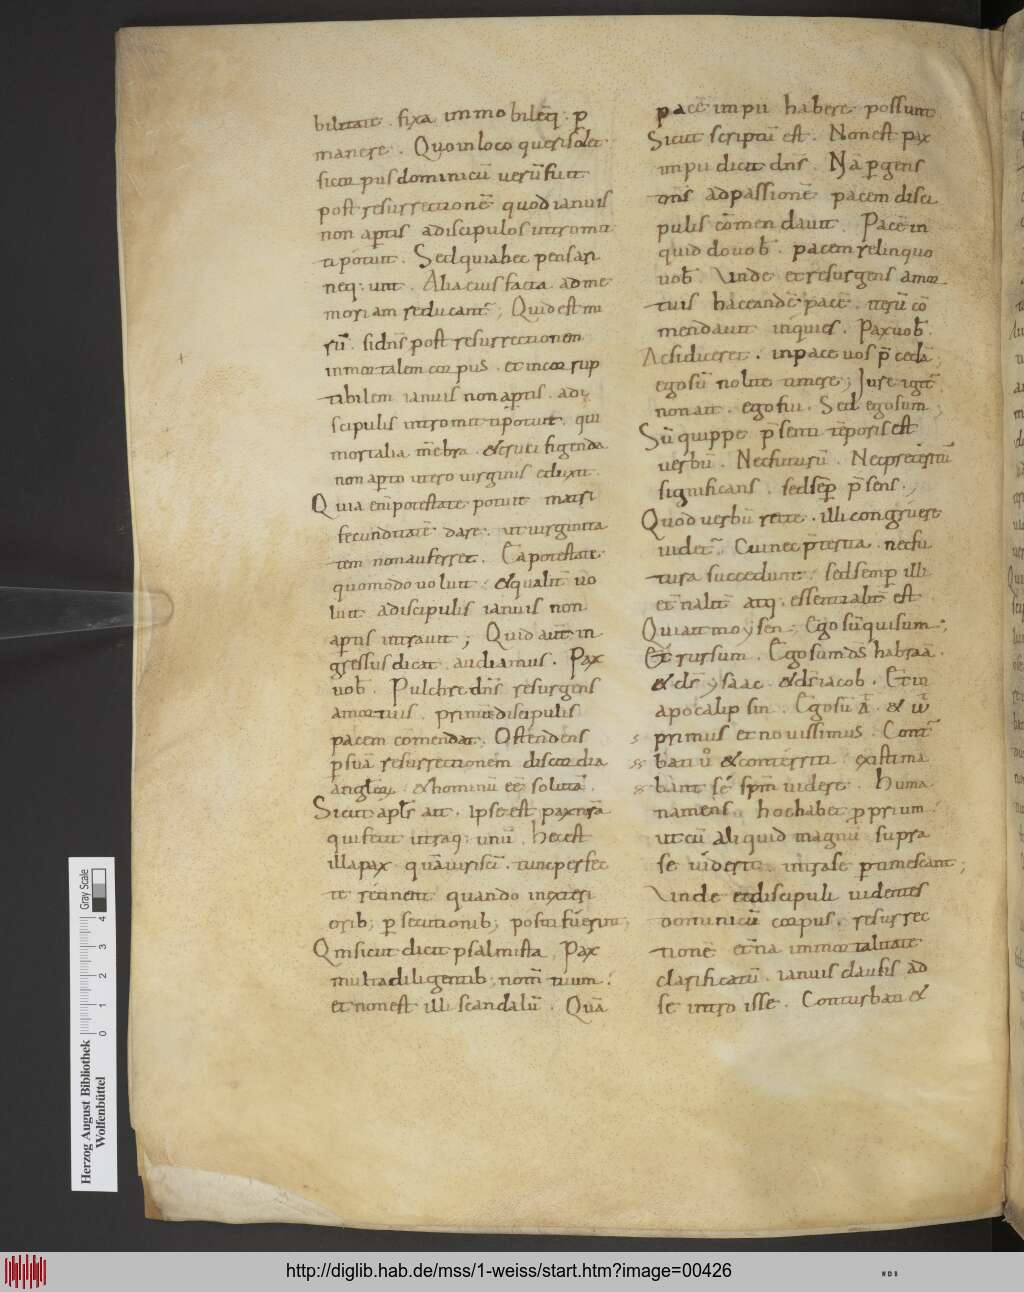 bilitatē . fixa immobilēq; p̄
manere . Quo in loco queri solet
si corpus dominicū uerū fuit
post resurrectionē quod ianuis
non ap̄tis ad discipulos intromit
ti potuit . Sed qui ahec pensari
neq: unt . Alia eius facta ad me
moriam reducant᷑; Quid est mi
rū . si dn̄s post resurrectionem
inmortalem corpus . et incorrup
tibilem ianuis non ap̄tis . ad di
scipulis intromitti potuit . qui
mortalia mēbra . & cruci figenda
non ap̄to utero uirginis eduxit .
Quia enī potestate potuit matri
fecunditatē dare . ut uirginita
tem non auferret . Ea potestate
quomodo uoluit . & qualit᷑ uo
luit ad discipulis ianuis non
ap̄tis intrauit ; Quid aut̄ in
gressus dicat . audiamus . Pax
uob̄ . Pulchre dn̄s resurgens
a mortuis . primū discipulis
pacem com̄endat . Ostendens
p̄ suā resurrectionem discordia
anglōꝝ . & hominū eē solutā .
Sicut apl̄s ait . Ipse est pax nr̄a
qui fecit utraq; unū . Hec est
illa pax quā uiri sc̄i . tunc perfec
te retinent quando in exteri
orib; p̄secutionib; positi fuerint;
Qm̄ sicut dicit psalmista . Pax
multa diligentib; nom̄ tuum .
et non est illi scandalū . Quā
pacē impii habere possunt
Sicut scriptū est . Non est pax
impii dicit dn̄s . Nā p̄gens
dn̄s ad passionē pacem disci
pulis cōmendauit . Pacē in
quid do uob̄ . pacem relinquo
uob̄ . Unde et resurgens a mor
tuis hanc eandē pacē . iterū cō
mendauit inquiens . Pax uob̄ .
Ac si diceret . in pace uos p̄cedā ;
ego sū nolite timere; Iure igit᷑
non ait . ego fui . Sed ego sum;
Sū quippe p̄senti tēporis est
uerbū . Nec futurū . Nec preteritū
significans . sed semp̄ p̄sens . ;
Quod uerbū recte . illi congruere
uidet᷑ . Cui nec p̄terita . nec fu
tura succedunt . sed semp̄ illi
et᷑nalit᷑ atq; essentialit᷑ est
Qui ait moysen . ; Ego sū qui sum . ;
Et rursum . Ego sum ds̄ habraā .
& ds̄ ysaac & ds̄ iacob . Et in
apocalipsin . Ego sū ā . & w̄
primus et nouissimus . Cont᷑
bati ů & conterriti existima
bant se sp̄m uidere . Huma
na mens hoc habet p̄prium .
ut cū aliquid magnū supra
se uiderit . intra se p̄timescant;
Unde et discipuli uidentes
dominicū corpus . resurrec
tionē et᷑na immortalitate
clarificatū . ianuis clausis ad
se introisse . Conturbati &
Herzog August Bibliothek
Wolfenbüttel
0 1 2 3 4
Gray Scale
http://diglib.hab.de/mss/1-weiss/start.htm?image=00426